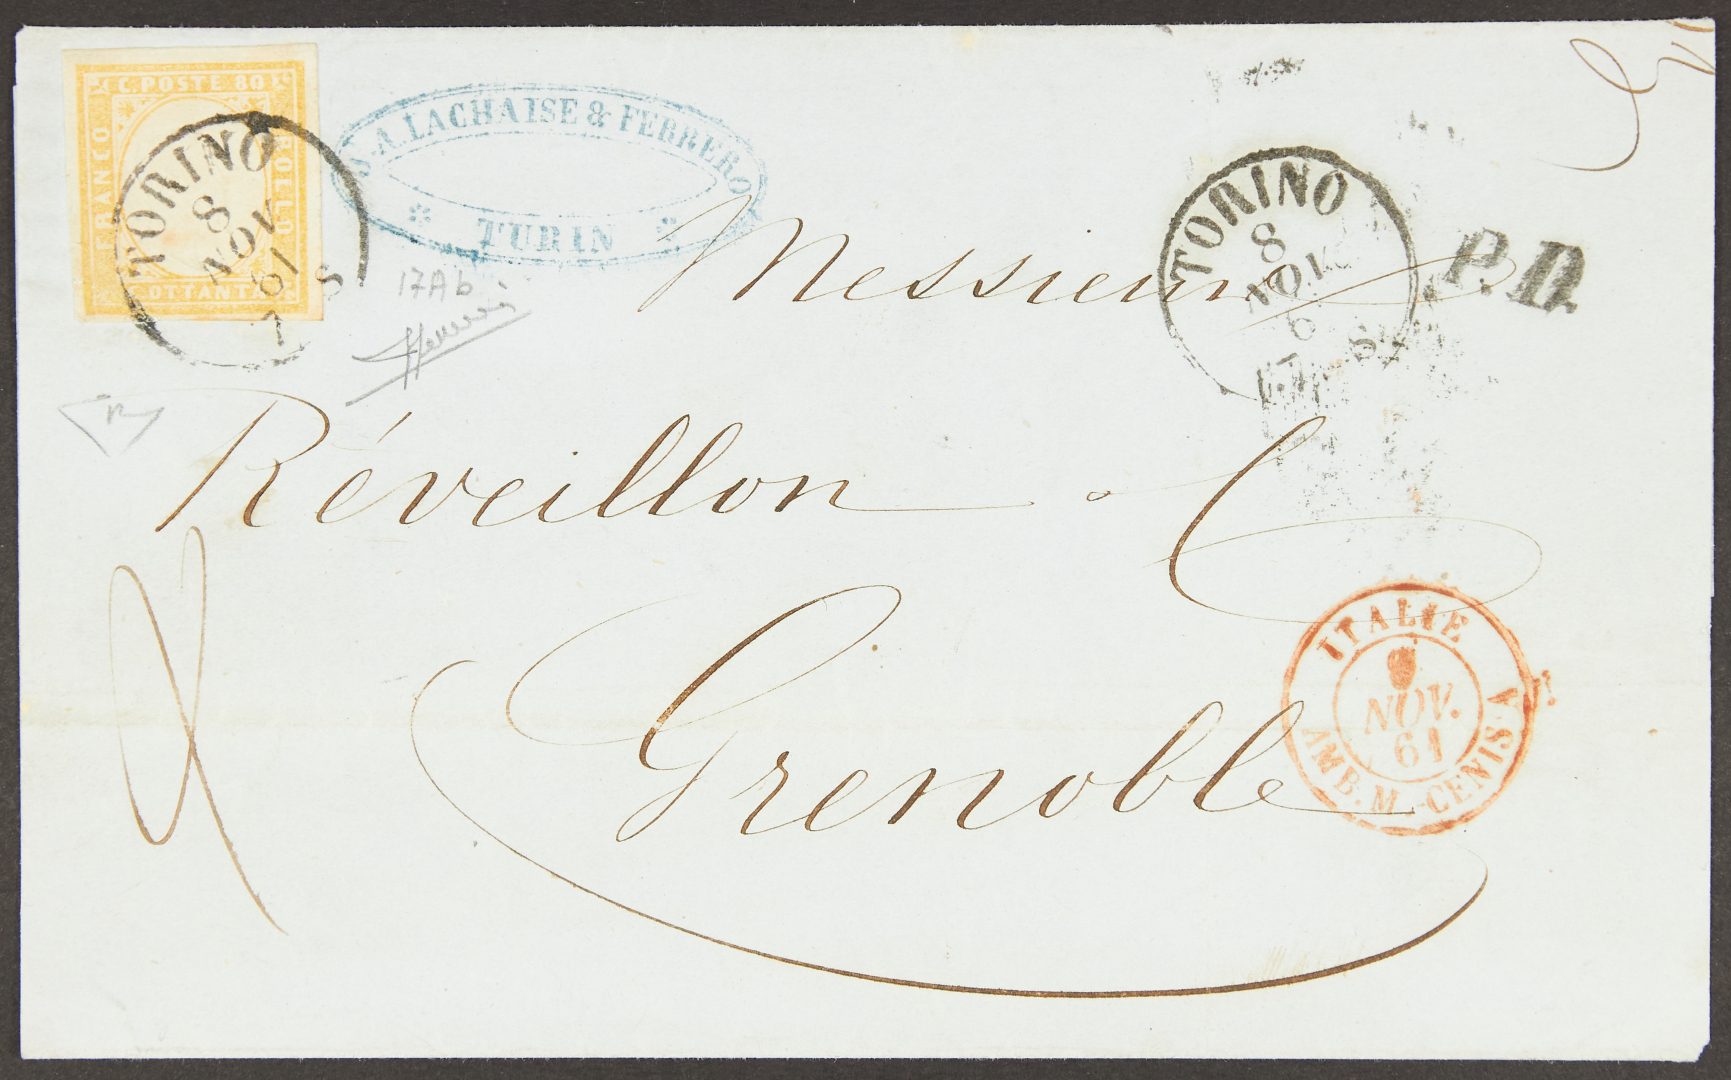 C. POSTE 80
FRANCO
BOLLO
OTTANTA
TORINO
8
NOV
61
7 S
A. LACHAISE & FERRERO
TURIN
17Ab
TORINO
8
NOV
6
7 S
P.D.
Messieurs
Réveillon & C
Grenoble
ITALIE
NOV.
61
AMB. M.-CENIS. A